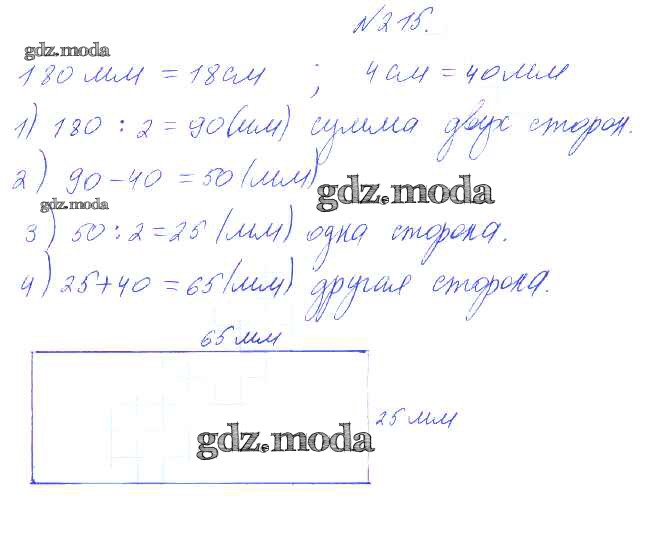 №215.
gdz.moda
180 мм = 18 см ; 4 см = 40 мм
1) 180 : 2 = 90 (мм) сумма двух сторон.
2) 90 - 40 = 50 (мм)
gdz.moda
gdz.moda
3) 50 : 2 = 25 (мм) одна сторона.
4) 25 + 40 = 65 (мм) другая сторона.
65 мм
25 мм
gdz.moda